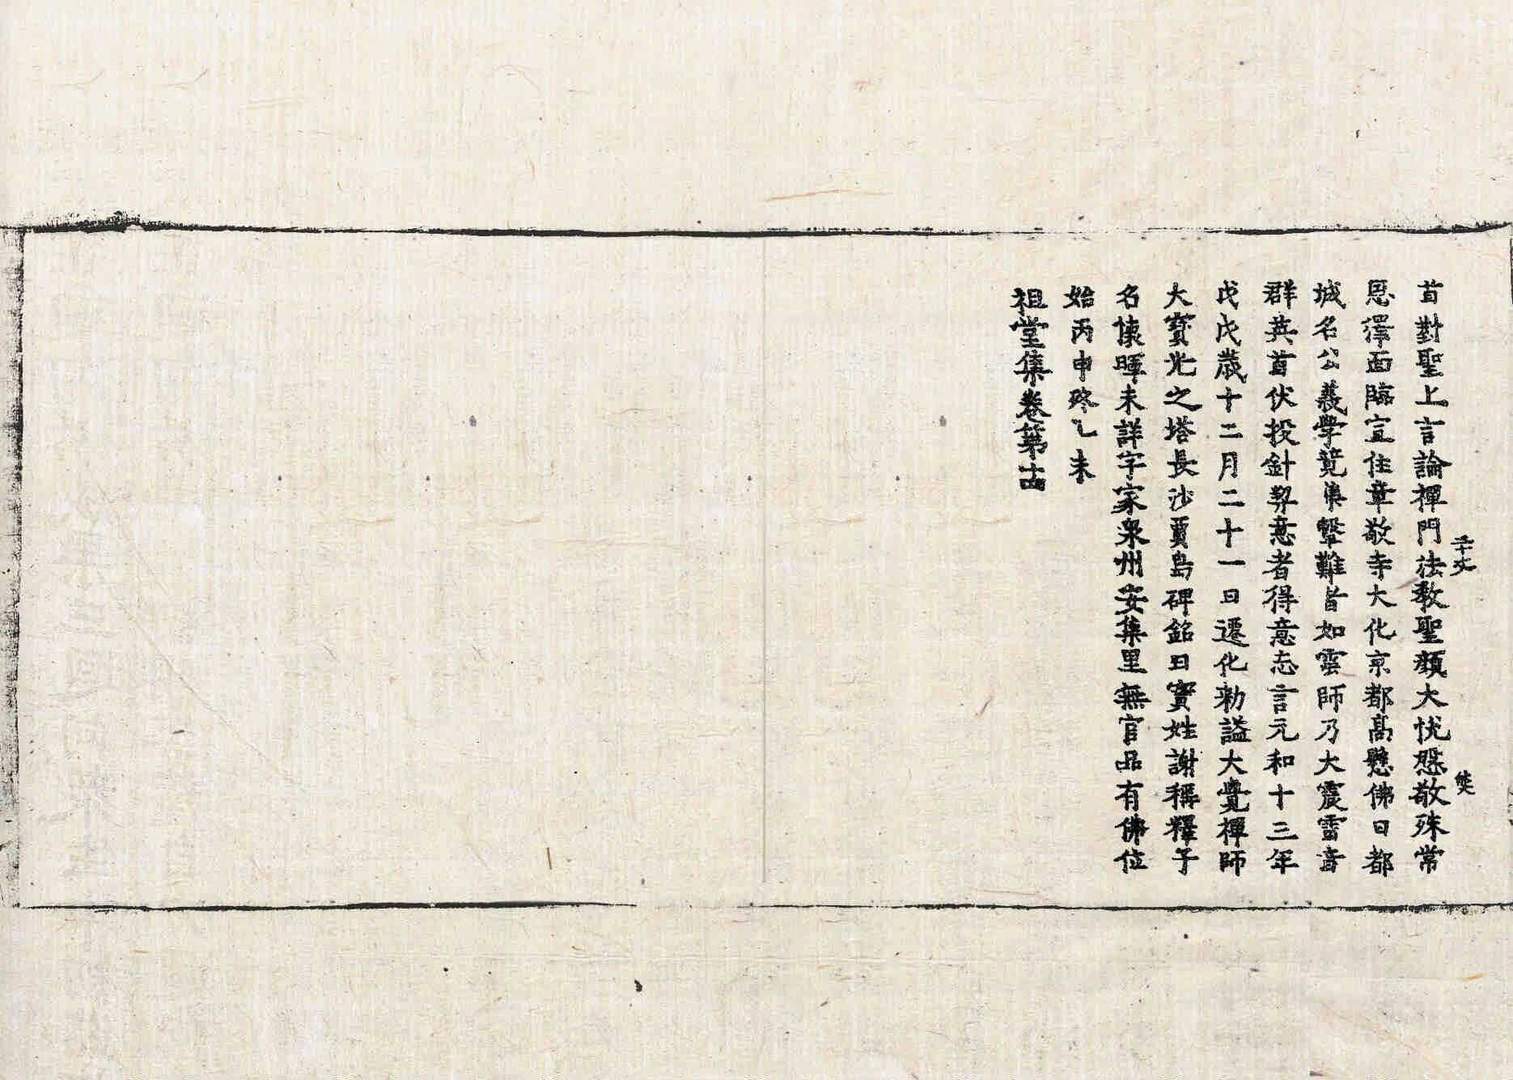 首對聖上言論禪門法教聖顏大悅慇敬殊常
恩澤面臨宣住章敬寺大化京都高懸佛日都
城名公義學竟集擊難者如雲師乃大震雷音
群英首伏投針契意者得意忘言元和十三年
戊戌歲十二月二十一日遷化勅謚大覺禪師
大寶光之塔長沙賈島碑銘曰實姓謝稱釋子
名懷暉未詳字家泉州安集里無官品有佛位
始丙申終乙未
祖堂集卷第十四